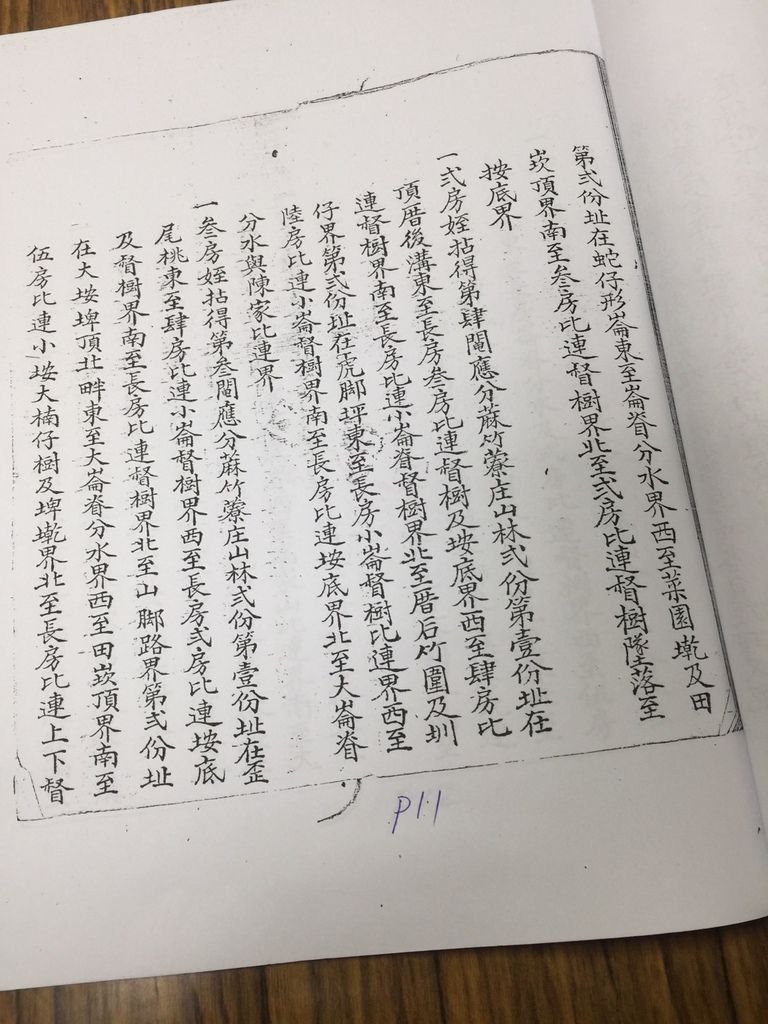 第弍份址在蛇仔形崙東至崙脊分水界西至菜園墘及田
崁頂界南至叁房比連督樹界北至弍房比連督樹墜落至
按底界
一弍房姪拈得第肆鬮應分蔴竹藔庄山林弍份第壹份址在
頂厝後溝東至長房叁房比連督樹及垵底界西至肆房比
連督樹界南至長房比連小崙脊督樹界北至厝后竹圍及圳
仔界第弍份址在虎脚坪東至長房小崙督樹比連界西至
陸房比連小崙督樹界南至長房比連垵底界北至大崙脊
分水與陳家比連界
一叁房姪拈得第叁鬮應分蔴竹藔庄山林弍份第壹份址在歪
尾桃東至肆房比連小崙督樹界西至長房弍房比連垵底
及督樹界南至長房比連督樹界北至山脚路界第弍份址
在大垵埤頂北畔東至大崙脊分水界西至田崁頂界南至
伍房比連小垵大楠仔樹及埤墘界北至長房比連上下督
P11